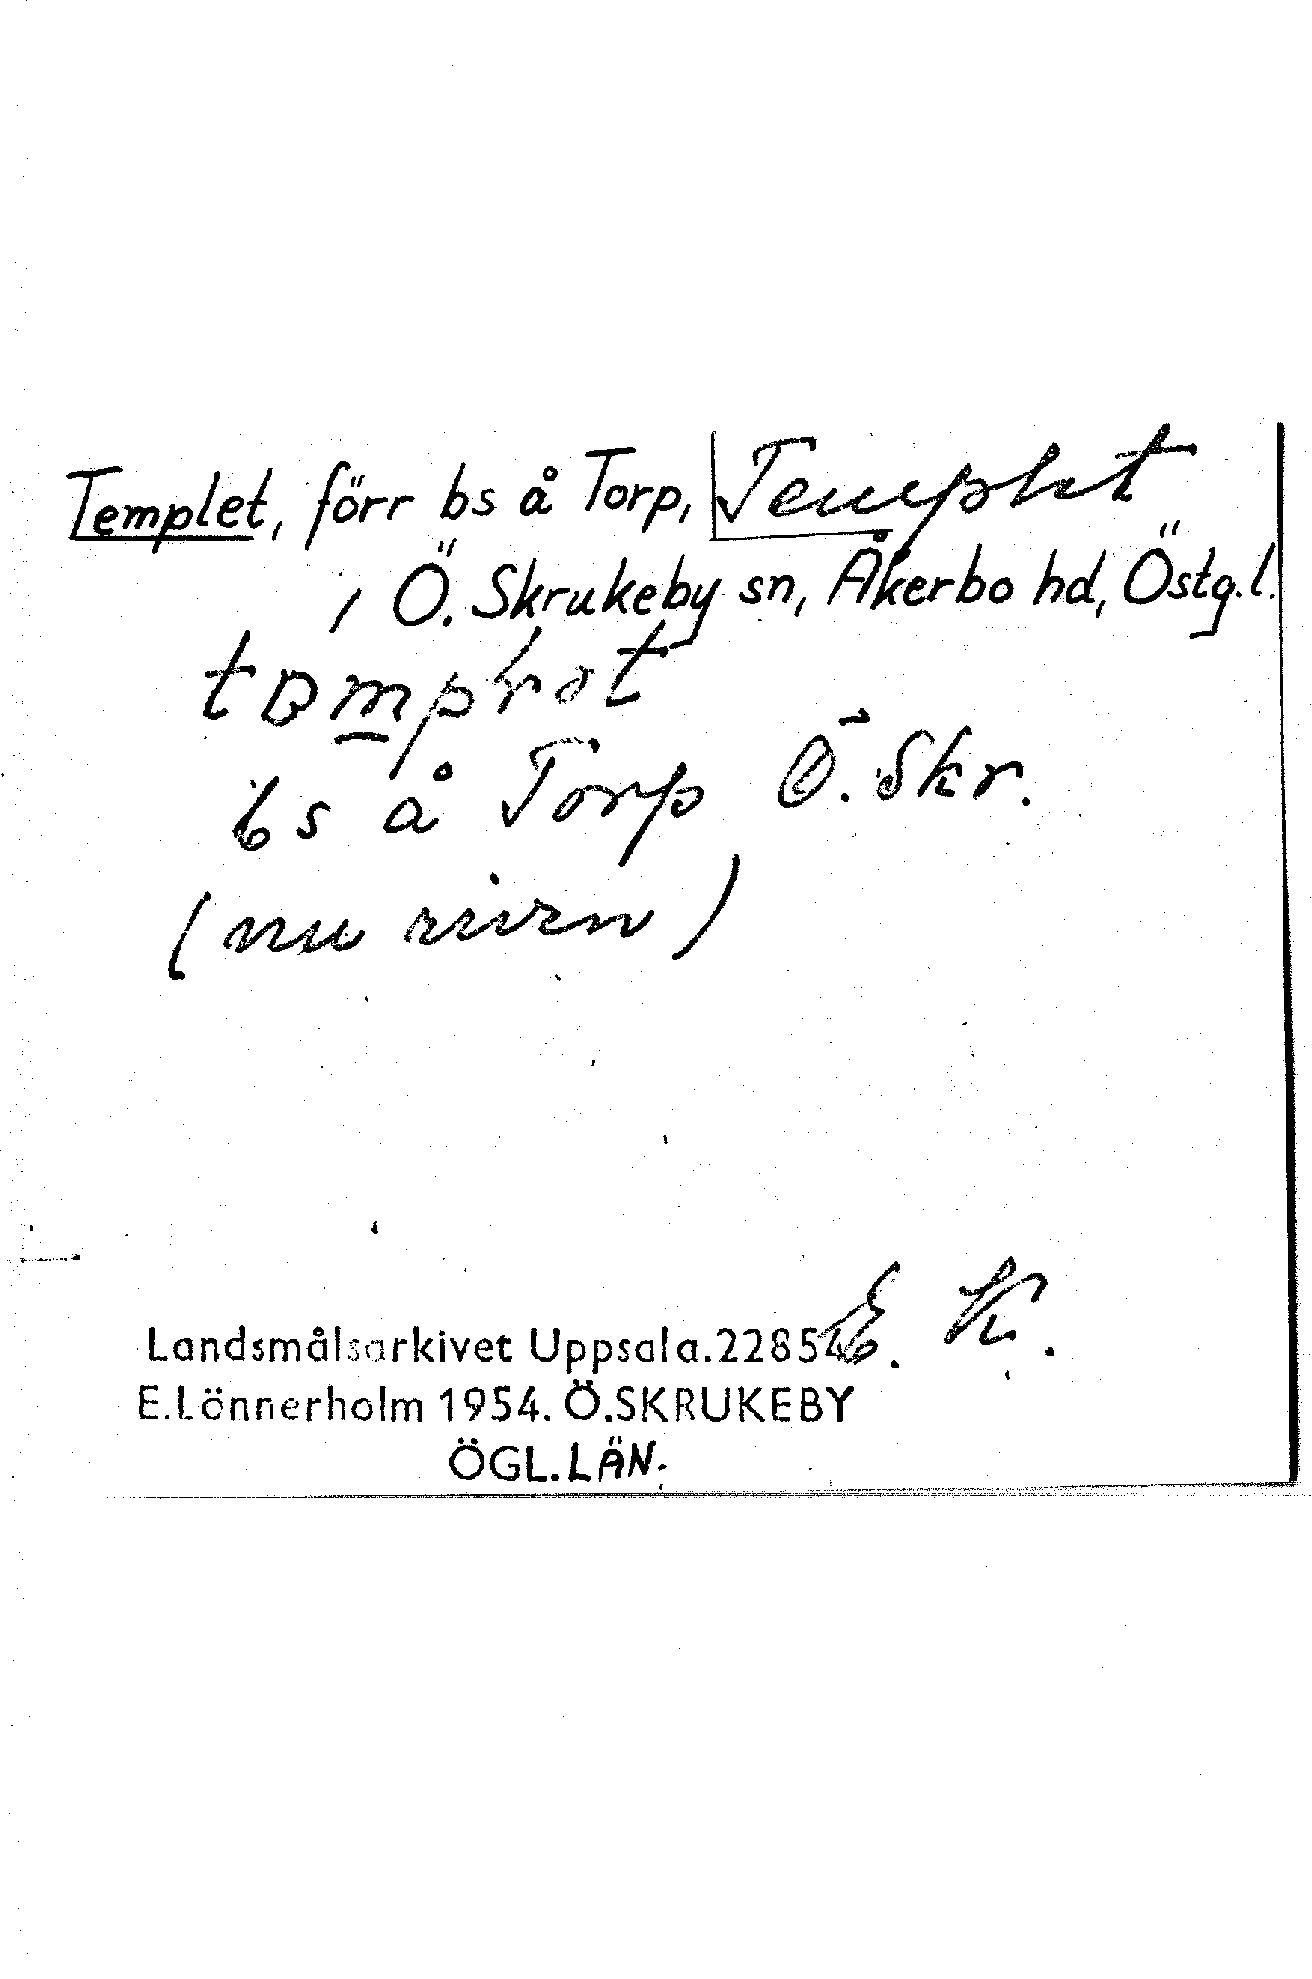 Templet, förr bs å Torp, Templet
i Ö. Skrukeby sn, Åkerbo hd, Östg.l.
bs å Torp Ö. Skr.
(nu riven)
E. K.
Landsmålsarkivet Uppsala.22854
E.Lönnerholm 1954. Ö.SKRUKEBY
ÖGL.LÄN.